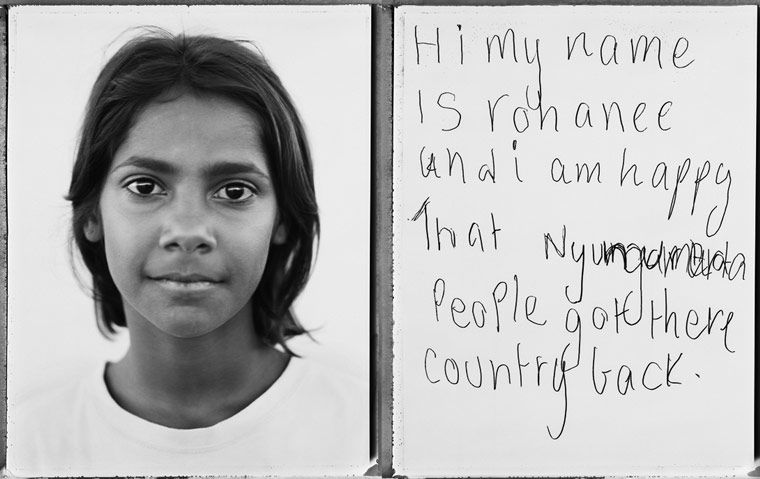 Hi my name
is rohanee
and i am happy
That Nyungumarda
People got there
country back.